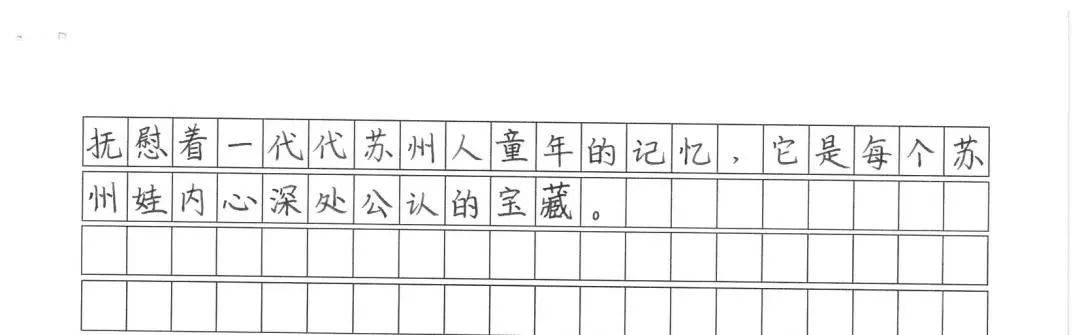 抚慰着一代代苏州人童年的记忆，它是每个苏
州娃内心深处公认的宝藏。